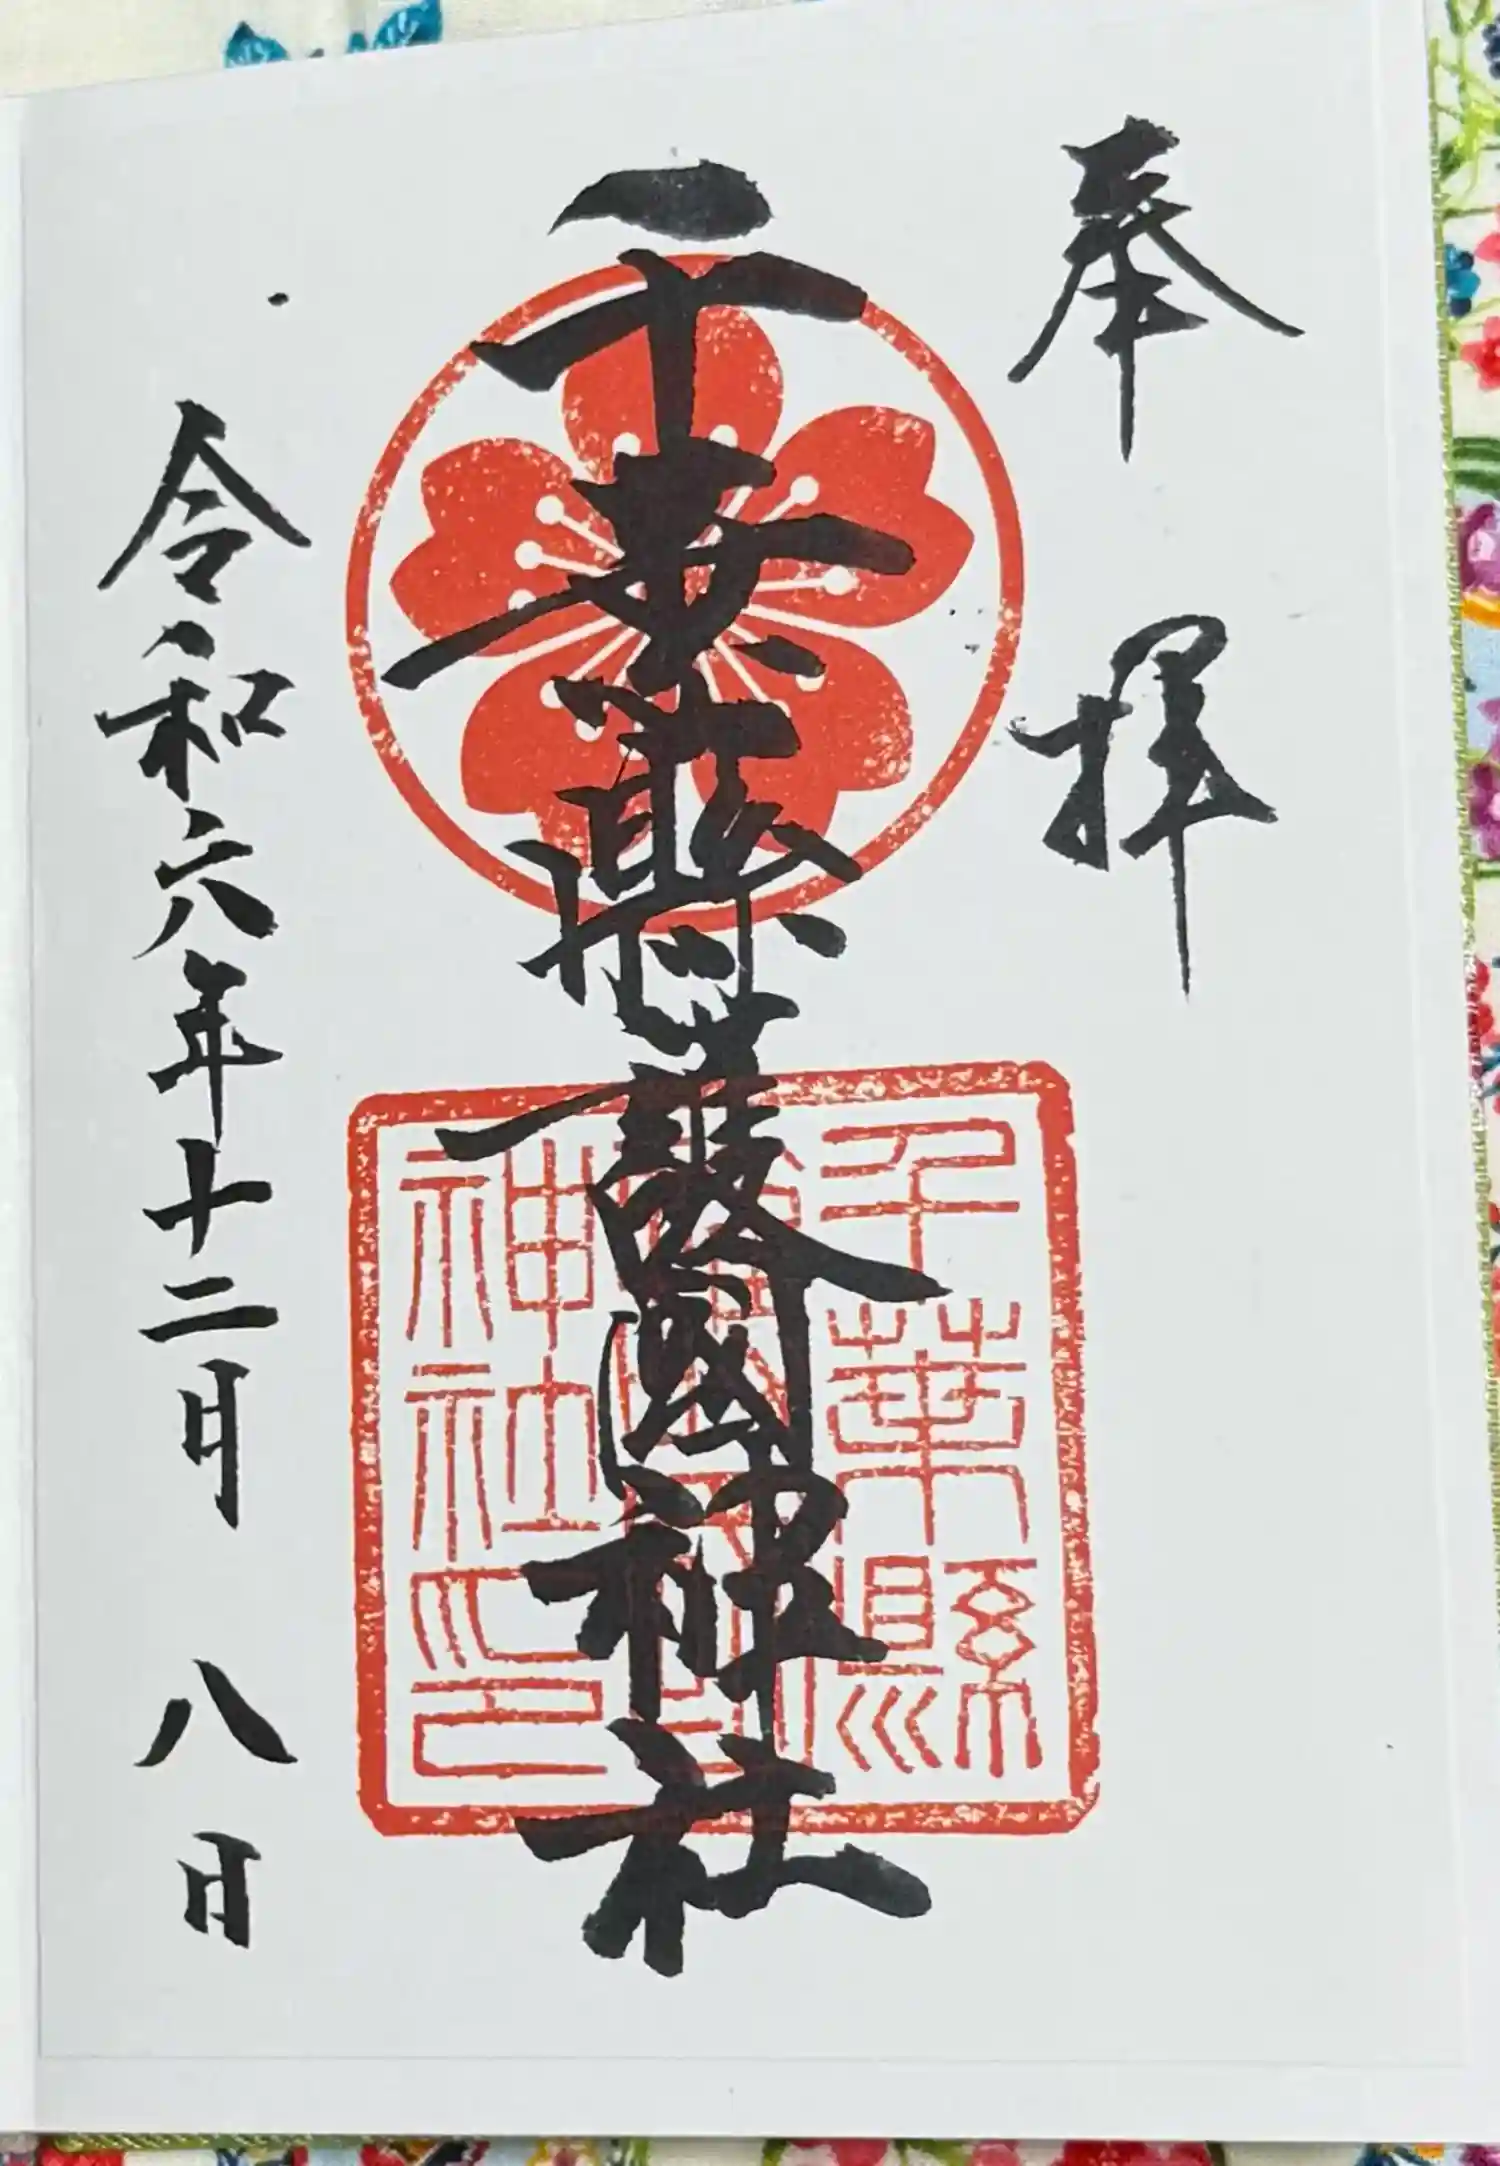 奉拝
千葉縣護國神社
千葉縣
神社印
令和六年十二月八日